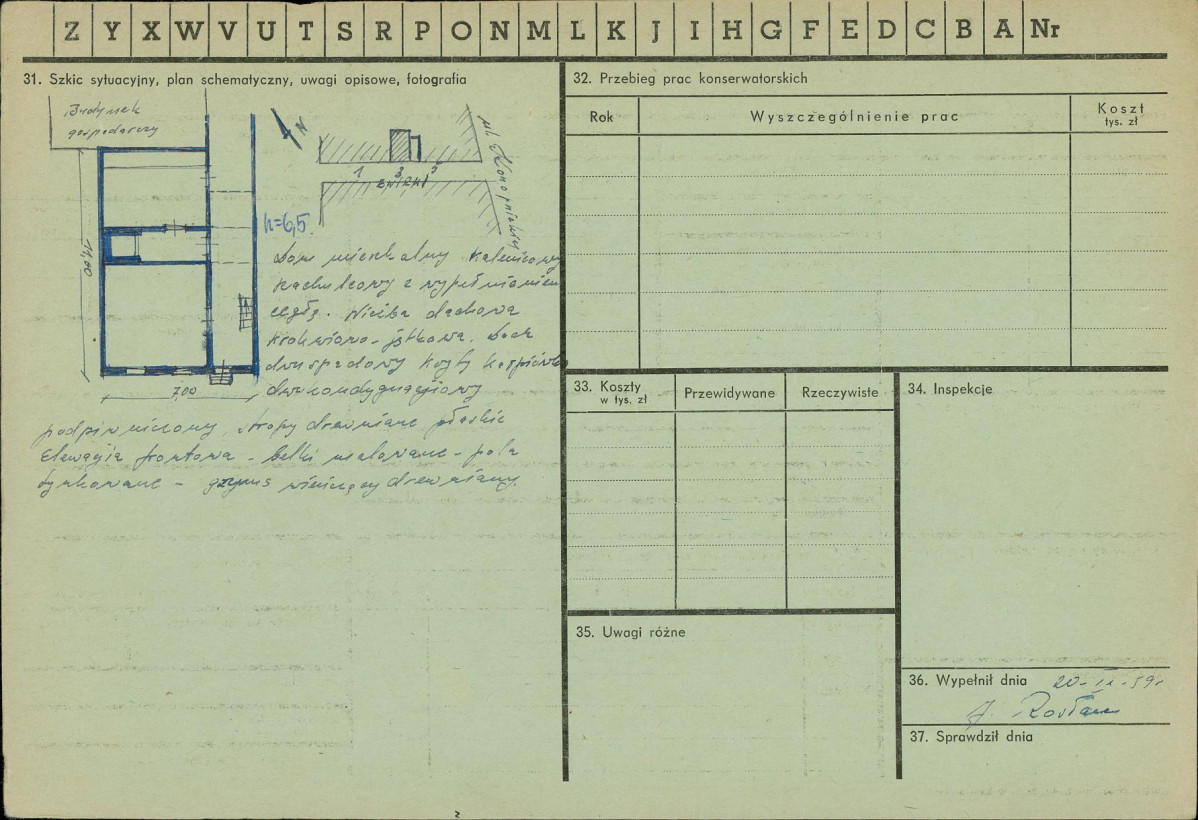 Z Y X W V U T S R P O N M L K J I H G F E D C B A Nr
31. Szkic sytuacyjny, plan schematyczny, uwagi opisowe, fotografia
Budynek
gospodarczy
N
1 3 5
ŻWIRKI
ul. Konopnickiej
11,00
h=6,5.
7,00
Dom mieszkalny kalenicowy
szachulcowy z wypełnieniem
cegłą. Więźba dachowa
krokwiowo-jętkowa. Dach
dwuspadowy kryty karpiówką
dwukondygnacjowy
podpiwniczony, stropy drewniane płaskie
Elewacja frontowa - belki malowane - pola
tynkowane - gzyms wieńczący drewniany.
32. Przebieg prac konserwatorskich
Rok
Wyszczególnienie prac
Koszt
tys. zł
33. Koszty
w tys. zł
Przewidywane
Rzeczywiste
34. Inspekcje
35. Uwagi różne
36. Wypełnił dnia 20-IX-59r
37. Sprawdził dnia